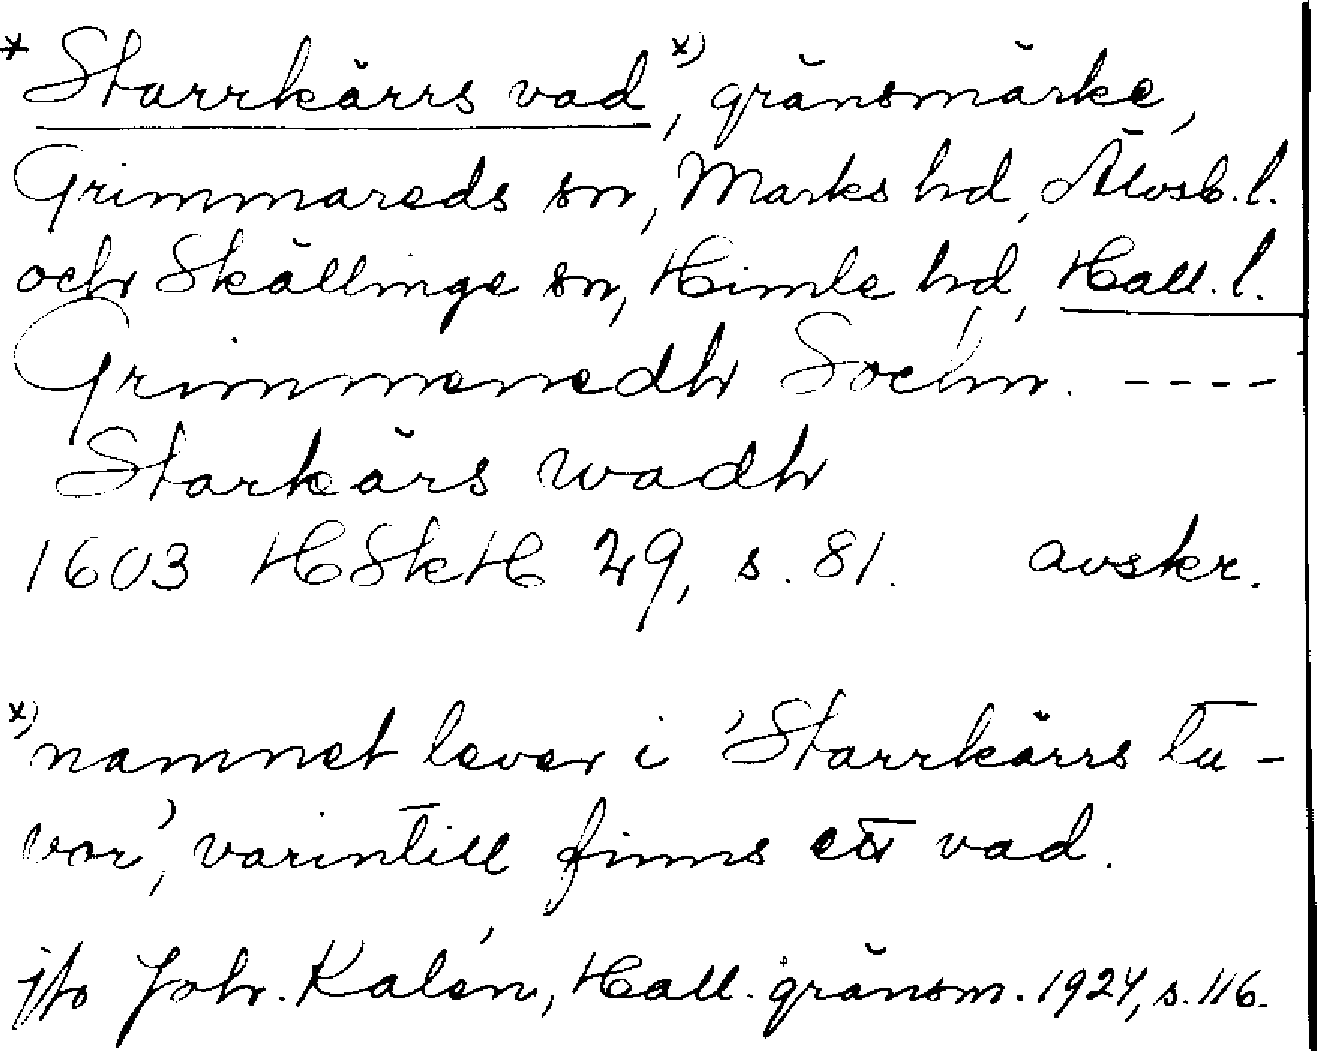 * Starrkärrs vad x), gränsmärke,
Grimmareds sn, Marks hd, Älvsb. l.
och Skällinge sn, Himle hd, Hall. l.
Grimmeredh Sochn. ----
Starkärs wadh
1603 HSkH 29, s. 81. avskr.
x) namnet lever i 'Starrkärrs tu-
vor', varintill finns ett vad.
jfr Joh. Kalén, Hall. gränsm. 1924, s. 116.